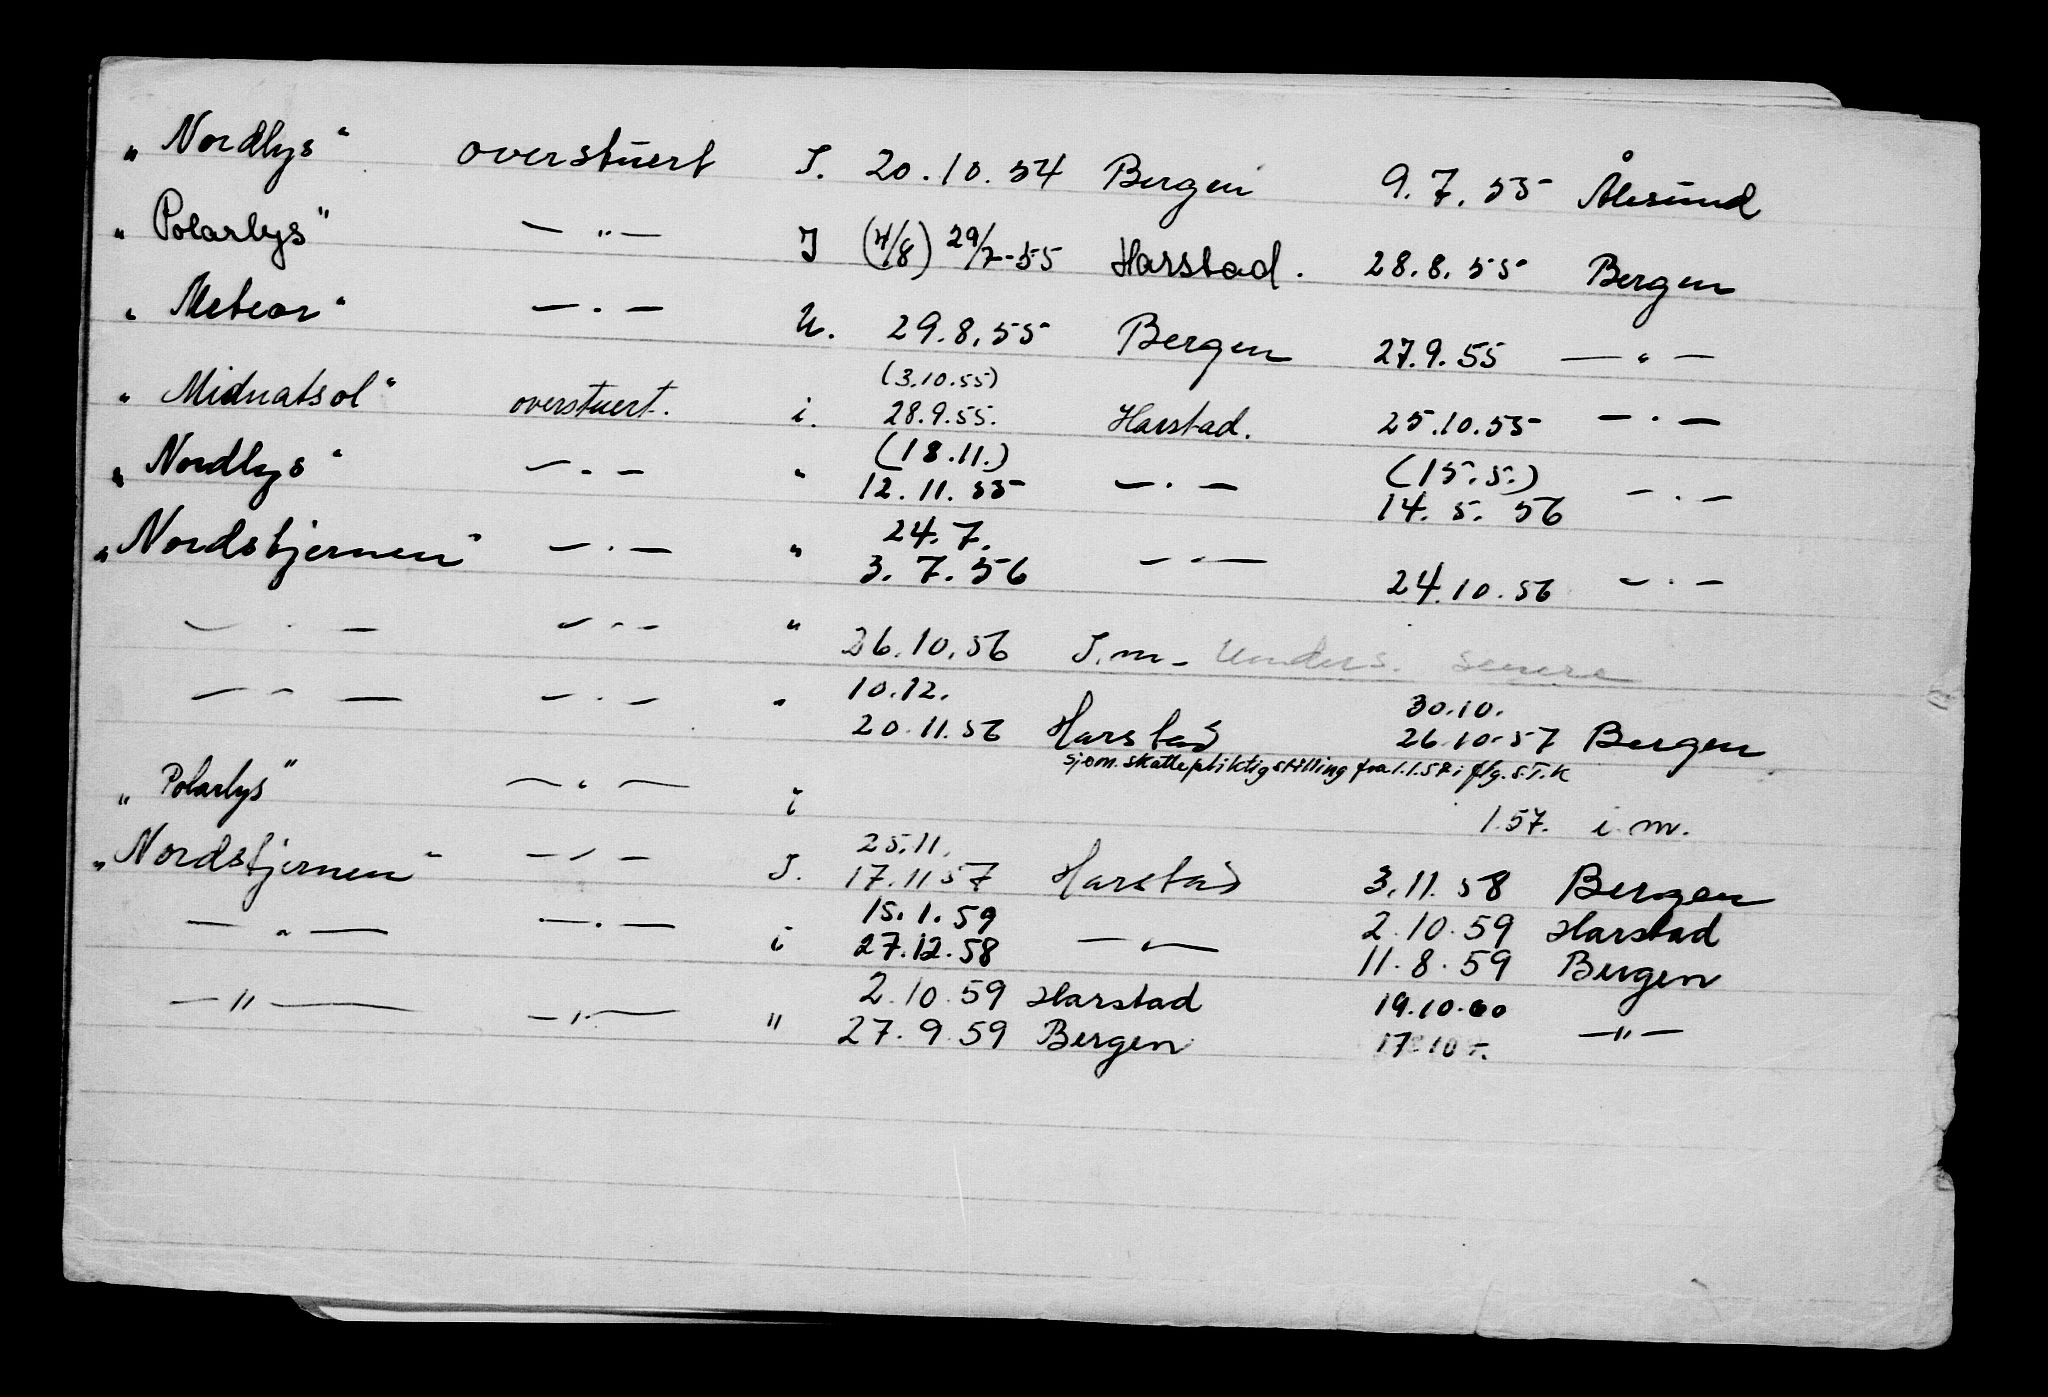 „Nordlys“ overstuert I. 20.10.54 Bergen 9.7.55 Ålesund
„Polarlys“ — " — I (4/8) 29/7-55 Harstad. 28.8.55 Bergen
„Meteor“ — " — U. 29.8.55 Bergen 27.9.55 — " —
(3.10.55)
„Midnatsol“ overstuert. i. 28.9.55. Harstad. 25.10.55 — " —
(18.11.) (15.5.)
„Nordlys“ — " — " 12.11.55 — " — 14.5.56 — " —
24.7.
„Nordstjernen“ — " — " 3.7.56 — " — 24.10.56 — " —
— " — — " — " 26.10.56 I.m. Unders. senere
10.12. 30.10.
— " — — " — " 20.11.56 Harstad 26.10.57 Bergen
sjøm.skattepliktig stilling fra 1.1.57 i flg. S.T.K
„Polarlys“ — " — i 1.57. i.m.
25.11.
„Nordstjernen“ — " — I. 17.11.57 Harstad 3.11.58 Bergen
15.1.59 2.10.59 Harstad
— " — — " — i 27.12.58 — " — 11.8.59 Bergen
2.10.59 Harstad 19.10.60
— " — — " — " 27.9.59 Bergen 17.10 — " —